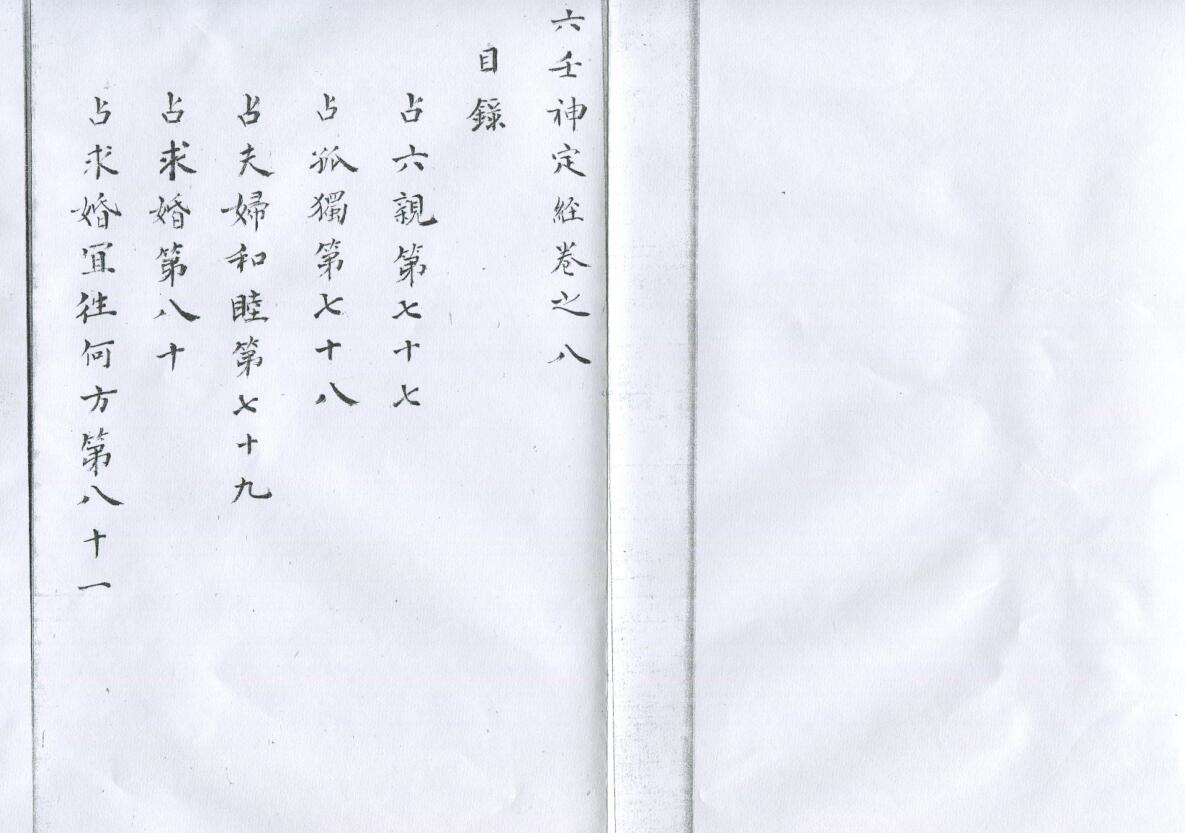 六壬神定経卷之八
目錄
占六親第七十七
占孤獨第七十八
占夫婦和睦第七十九
占求婚第八十
占求婚冝徃何方第八十一